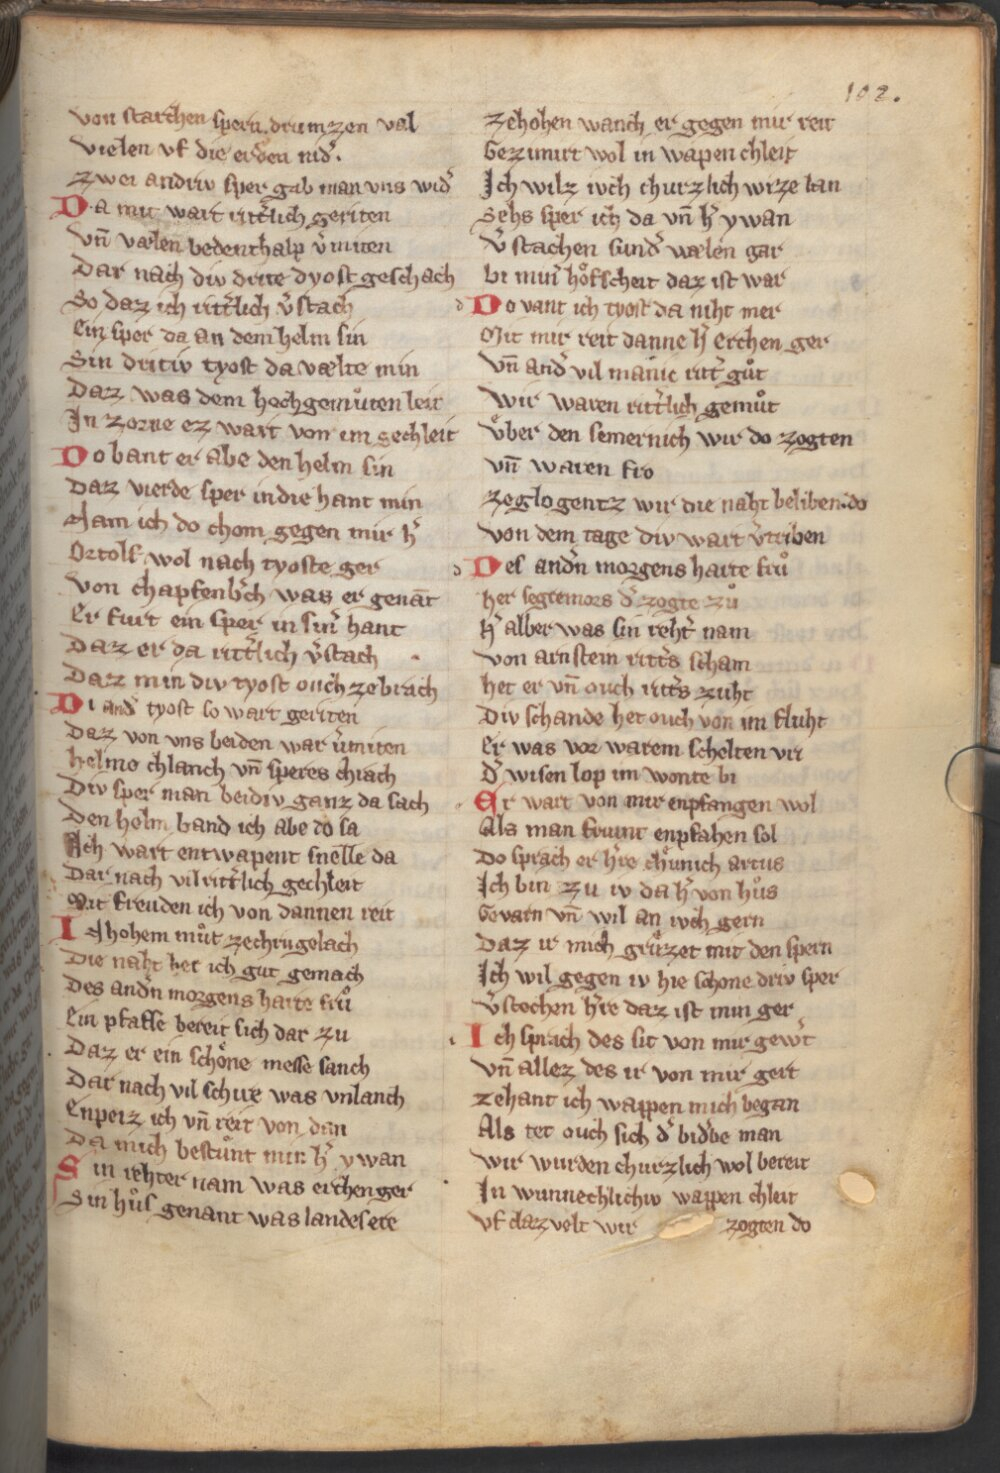 102.
von starchen spern drumzen val
vielen vf die erden nid᷑.
zwei andriv sper gab man vns wid᷑
Da mit wart ritt᷑lich geriten
vn̄ vælen bedenthalp v᷑miten
Dar nach div drite dyost geschach
So daz ich ritt᷑lich v᷑stach
Ein sper da an dem helm sin
Sin dritiv tyost da vælte min
Daz was dem hochgemuͦten leit
In zorne ez wart von im gechleit
Do bant er abe den helm sin
Daz vierde sper in die hant min
Nam ich do chom gegen mir h᷑
Ortolf wol nach tyoste ger
von chapfenb᷑ch was er genāt
Er furt ein sper in sin᷑ hant
Daz er da ritt᷑lich v᷑stach
Daz min div tyost ouch zebrach
Di and᷑ tyost so wart geriten
Daz von vns beiden war v᷑miten
helme chlanch vn̄ speres chrach
Div sper man beidiv ganz da sach
Den helm band ich abe do sa
Ich wart entwapent snelle da
Dar nach vil ritt᷑lich gechleit
Mit freuden ich von dannen reit
In hohem muͦt zechrugelach
Die naht het ich gut gemach
Des andn̄ morgens harte fruͦ
Ein pfaffe bereit sich dar zu
Daz er ein schoͤne messe sanch
Dar nach vil schire was vnlanch
Enpeiz ich vn̄ reit von dan
Da mich bestuͦnt min h᷑ ywan
Sin rehter nam was erchenger
Sin huͦs genant was landesere
zehohen wanch er gegen mir reit
Gezimirt wol in wapen chleit
Ich wilz ivch churzlich wize lan
Sehs sper ich da vn̄ h᷑ ywan
v᷑stachen sund᷑ vælen gar
bi min᷑ hoͤfscheit daz ist war
Do vant ich tyost da niht mer
Mit mir reit danne h᷑ erchen ger
vn̄ and᷑ vil manic ritt᷑ guͦt
wir waren ritt᷑lich gemuͦt
vͤber den semernich wir do zogten
vn̄ waren fro
zeglogentz wir die naht beliben do
von dem tage div wart v᷑triben
Des andn̄ morgens harte fruͦ
her segremors d᷑ zogte zuͦ
h᷑ alber was sin reht᷑ nam
von arnstein ritt᷑s scham
het er vn̄ ouch ritt᷑s zuht
Div schande het ouch von im fluht
Er was vor warem schelten vri
d᷑ wisen lop im wonte bi
Er wart von mir enpfangen wol
Als man frunt enpfahen sol
Do sprach er h᷑re chuͤnich artus
Ich bin zu iv da h᷑ von huͦs
Gevarn vn̄ wil an ivch gern
Daz ir mich gruͤzet mit den spern
Ich wil gegen iv hie schone driv sper
v᷑stechen h᷑re daz ist min ger
Ich sprach des sit von mir gew᷑t
vn̄ allez des ir von mir gert
zehant ich wappen mich began
Als tet ouch sich d᷑ bid᷑be man
wir wurden churzlich wol bereit
In wunnechlichiv wappen chleit
vf daz velt wir zogten do